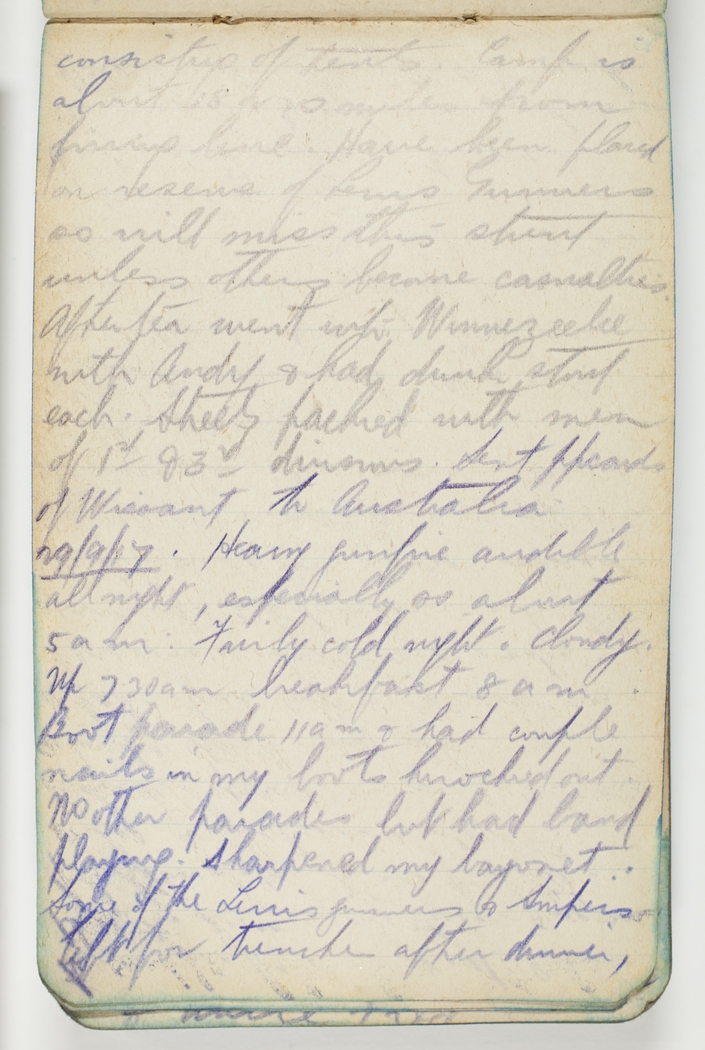 consisting of tents. Camp is
about 18 or 20 miles from
firing line. Have been placed
on reserve of Lewis Gunners
so will miss this stunt
unless others become casualties.
After tea went into Winnezeele
with Andy & had drink stout
each. Streets packed with men
of 1st & 3rd divisions. Sent Pcards
of Wissant to Australia
29/9/17. Heavy gunfire audible
all night, especially so about
5 am. Fairly cold night & cloudy.
Up 730am breakfast 8 am.
Boot parade 11am & had couple
nails in my boots knocked out.
No other parades but had band
playing. Sharpened my bayonet.
Some of the Lewis gunners & Snipers
left for trenches after dinner,